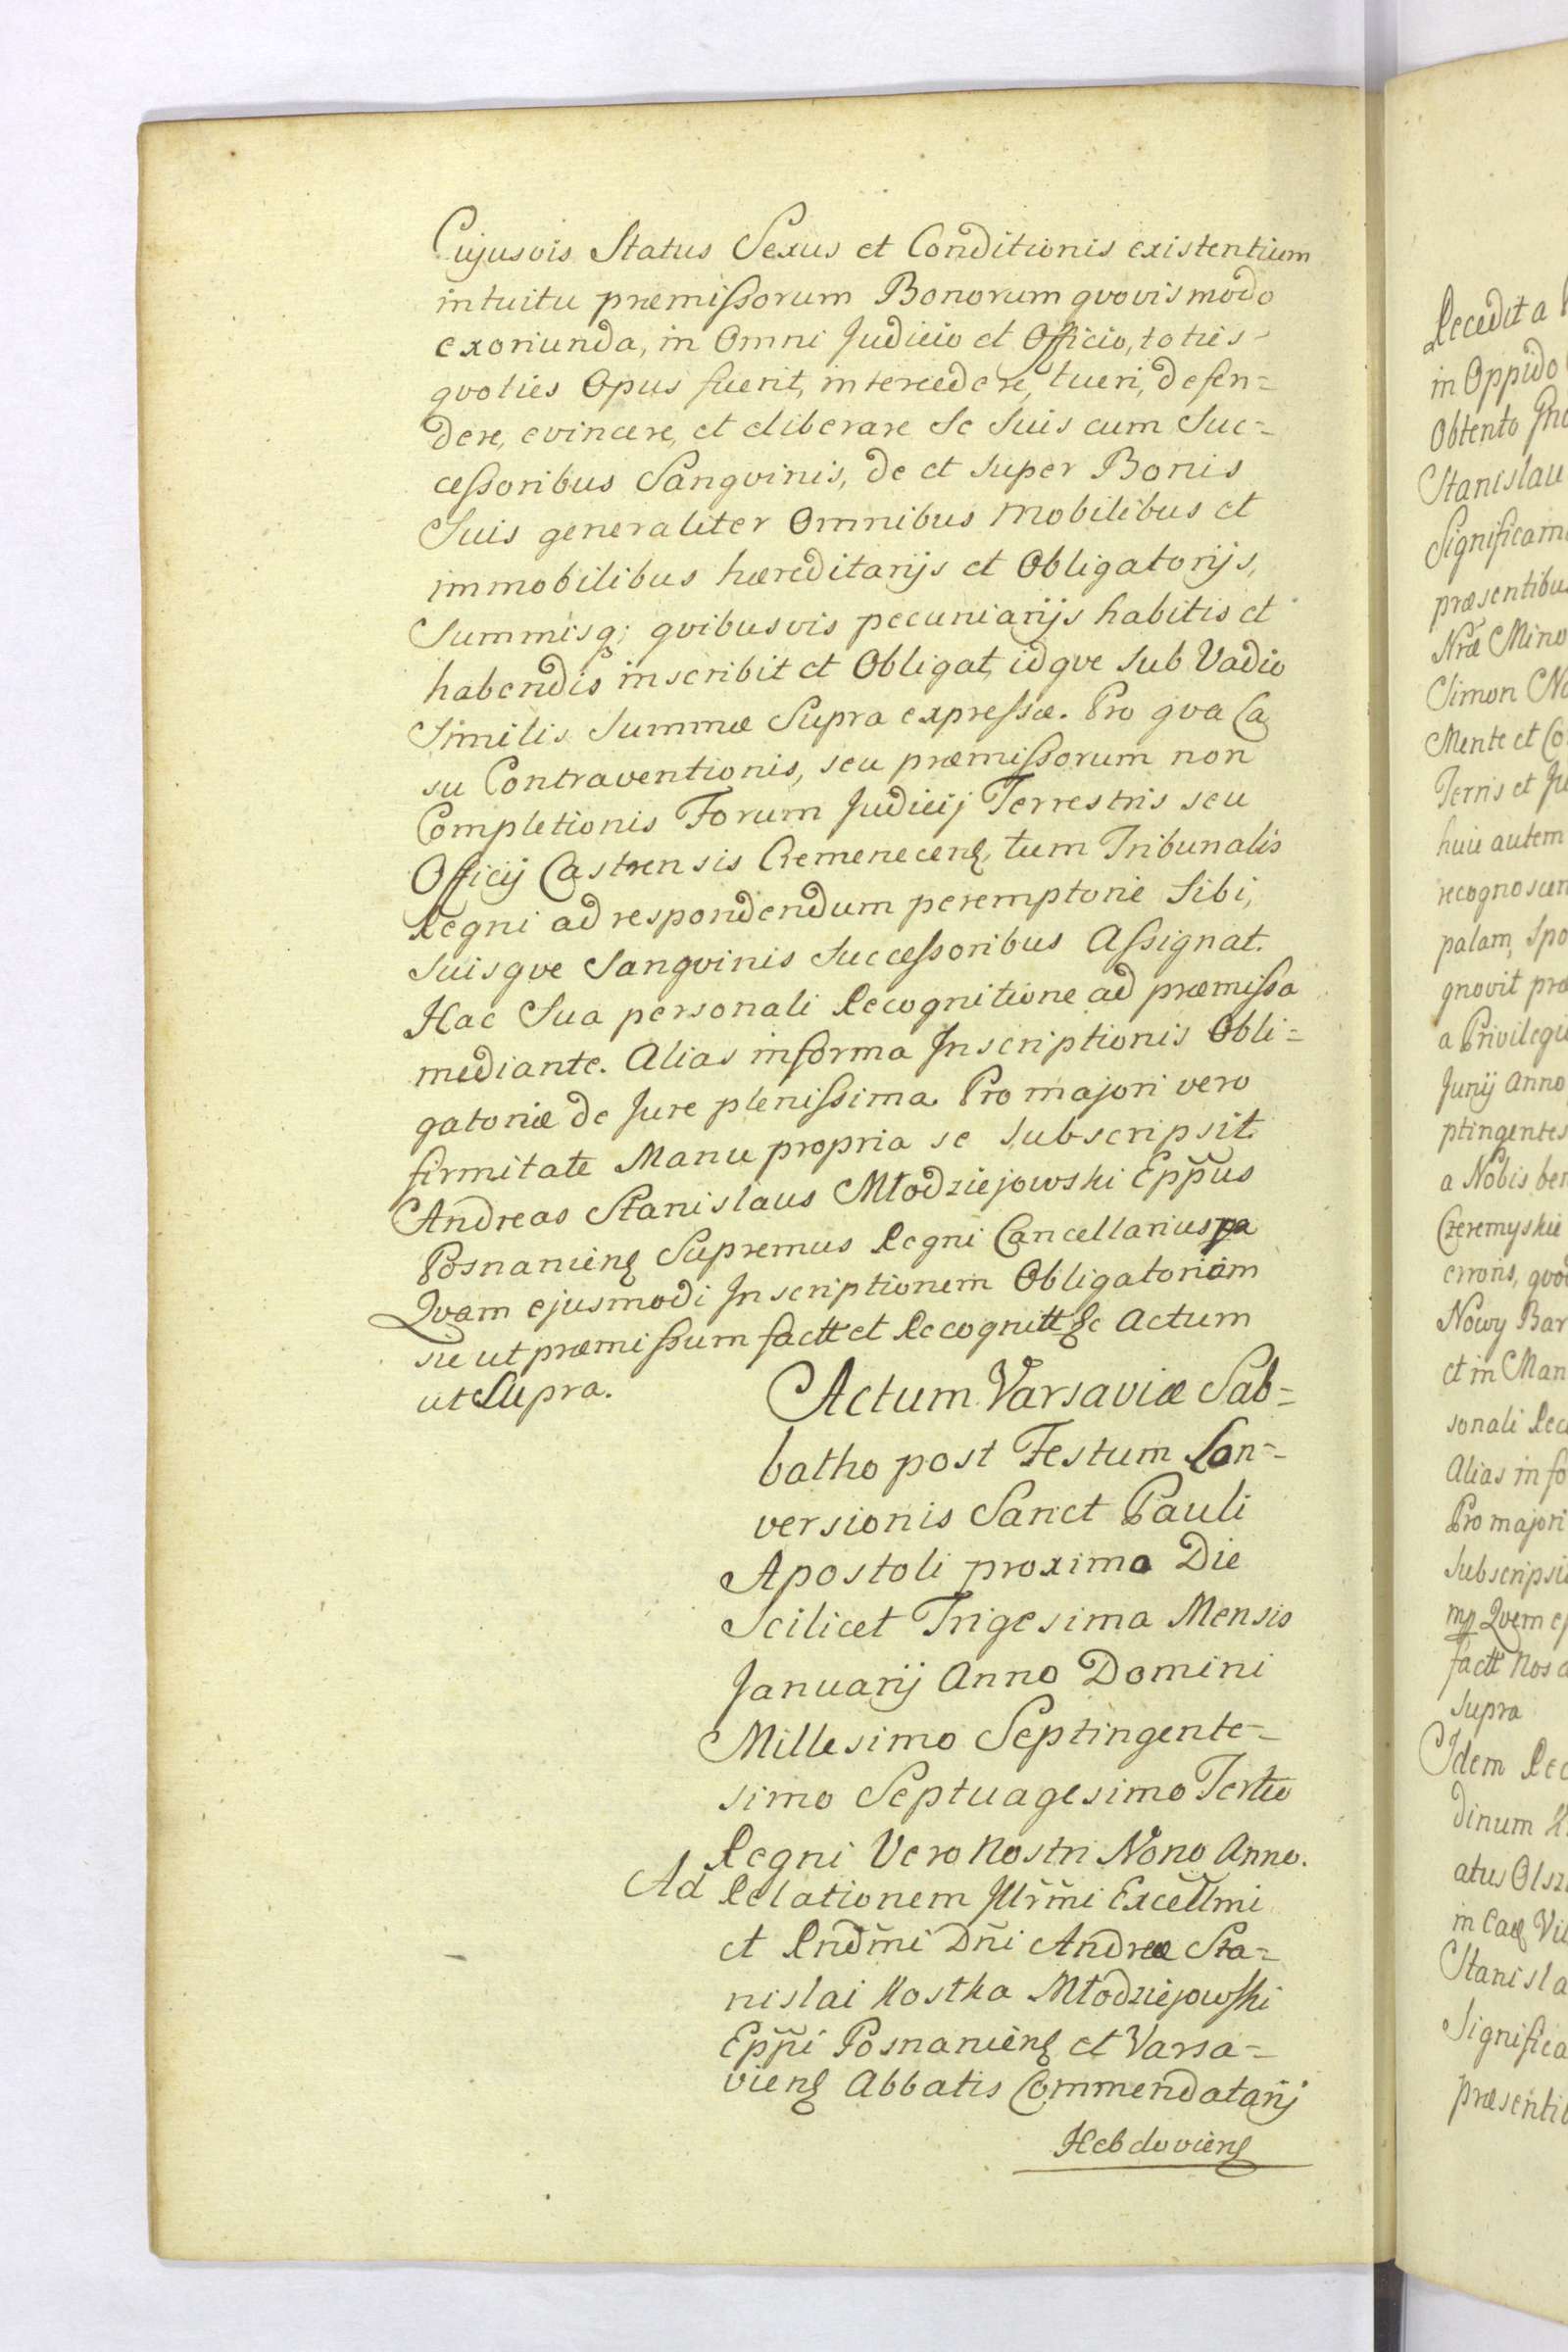 Cujusvis Status Sexus et Conditionis existentium
intuitu præmissorum Bonorum qvovis modo
exoriunda, in Omni Judicio et Officio, toties
qvoties Opus fuerit, intercedere, tueri, defen=
dere, evincere, et eliberare Se Suis cum Suc=
cessoribus Sangvinis, de et super Bonis
Suis generaliter Omnibus Mobilibus et
immobilibus hæreditarijs et Obligatorijs,
Summisq; qvibusvis pecuniarijs habitis et
habendis inscribit et Obligat, idqve sub Vadio
Similis Summæ Supra expressæ. Pro qva Ca
su Contraventionis, seu præmissorum non
Completionis Forum Judicij Terrestris seu
Officij Castrensis Cremenecens, tum Tribunalis
Regni ad respondendum peremptorie Sibi,
Suisqve Sangvinis Successoribus Assignat.
Hac Sua personali Recognitione ad præmissa
mediante. Alias in forma Inscriptionis Obli=
gatoriæ de Jure plenissima. Pro majori vero
firmitate Manu propria se Subscripsit.
Andreas Stanislaus Młodziejowski Epp̃us
Posnaniens Supremus Regni Cancellarius
Qvam ejusmodi Inscriptionem Obligatoriam
sic ut præmissum factt et Recognitt &c Actum
ut Supra.
Actum Varsaviæ Sab=
batho post Festum Con=
versionis Sanct Pauli
Apostoli proximo Die
Scilicet Trigesima Mensis
Januarij Anno Domini
Millesimo Septingente=
simo Septuagesimo Tertio
Regni Vero Nostri Nono Anno.
Ad Relationem Illr̃mi Excell̃mi
et Rnd̃mi Dñi Andreæ Sta=
nislai Kostka Młodziejowski
Epp̃i Posnaniens et Varsa=
viens Abbatis Commendatarij
Hebdoviens
Recedit a
in Oppido
Obtento
Stanislau
Significam
præsentibus
Nræ Mino
Simon
Mente et Co
Terris et Ju
huic autem
recognoscen
palam, Spo
gnovit præ
a Privilegi
Junij Anno
ptingentes
a Nobis ben
Czeremyskie
erroris, qvod
Nowy Bar
et in Man
sonali Rec
Alias in fo
Pro majori
Subscripsi
mp Qvem ej
factt Nos
Supra
Idem Rec
dinum
atus Olsz
in Cas Vi
Stanisla
Significa
præsentib